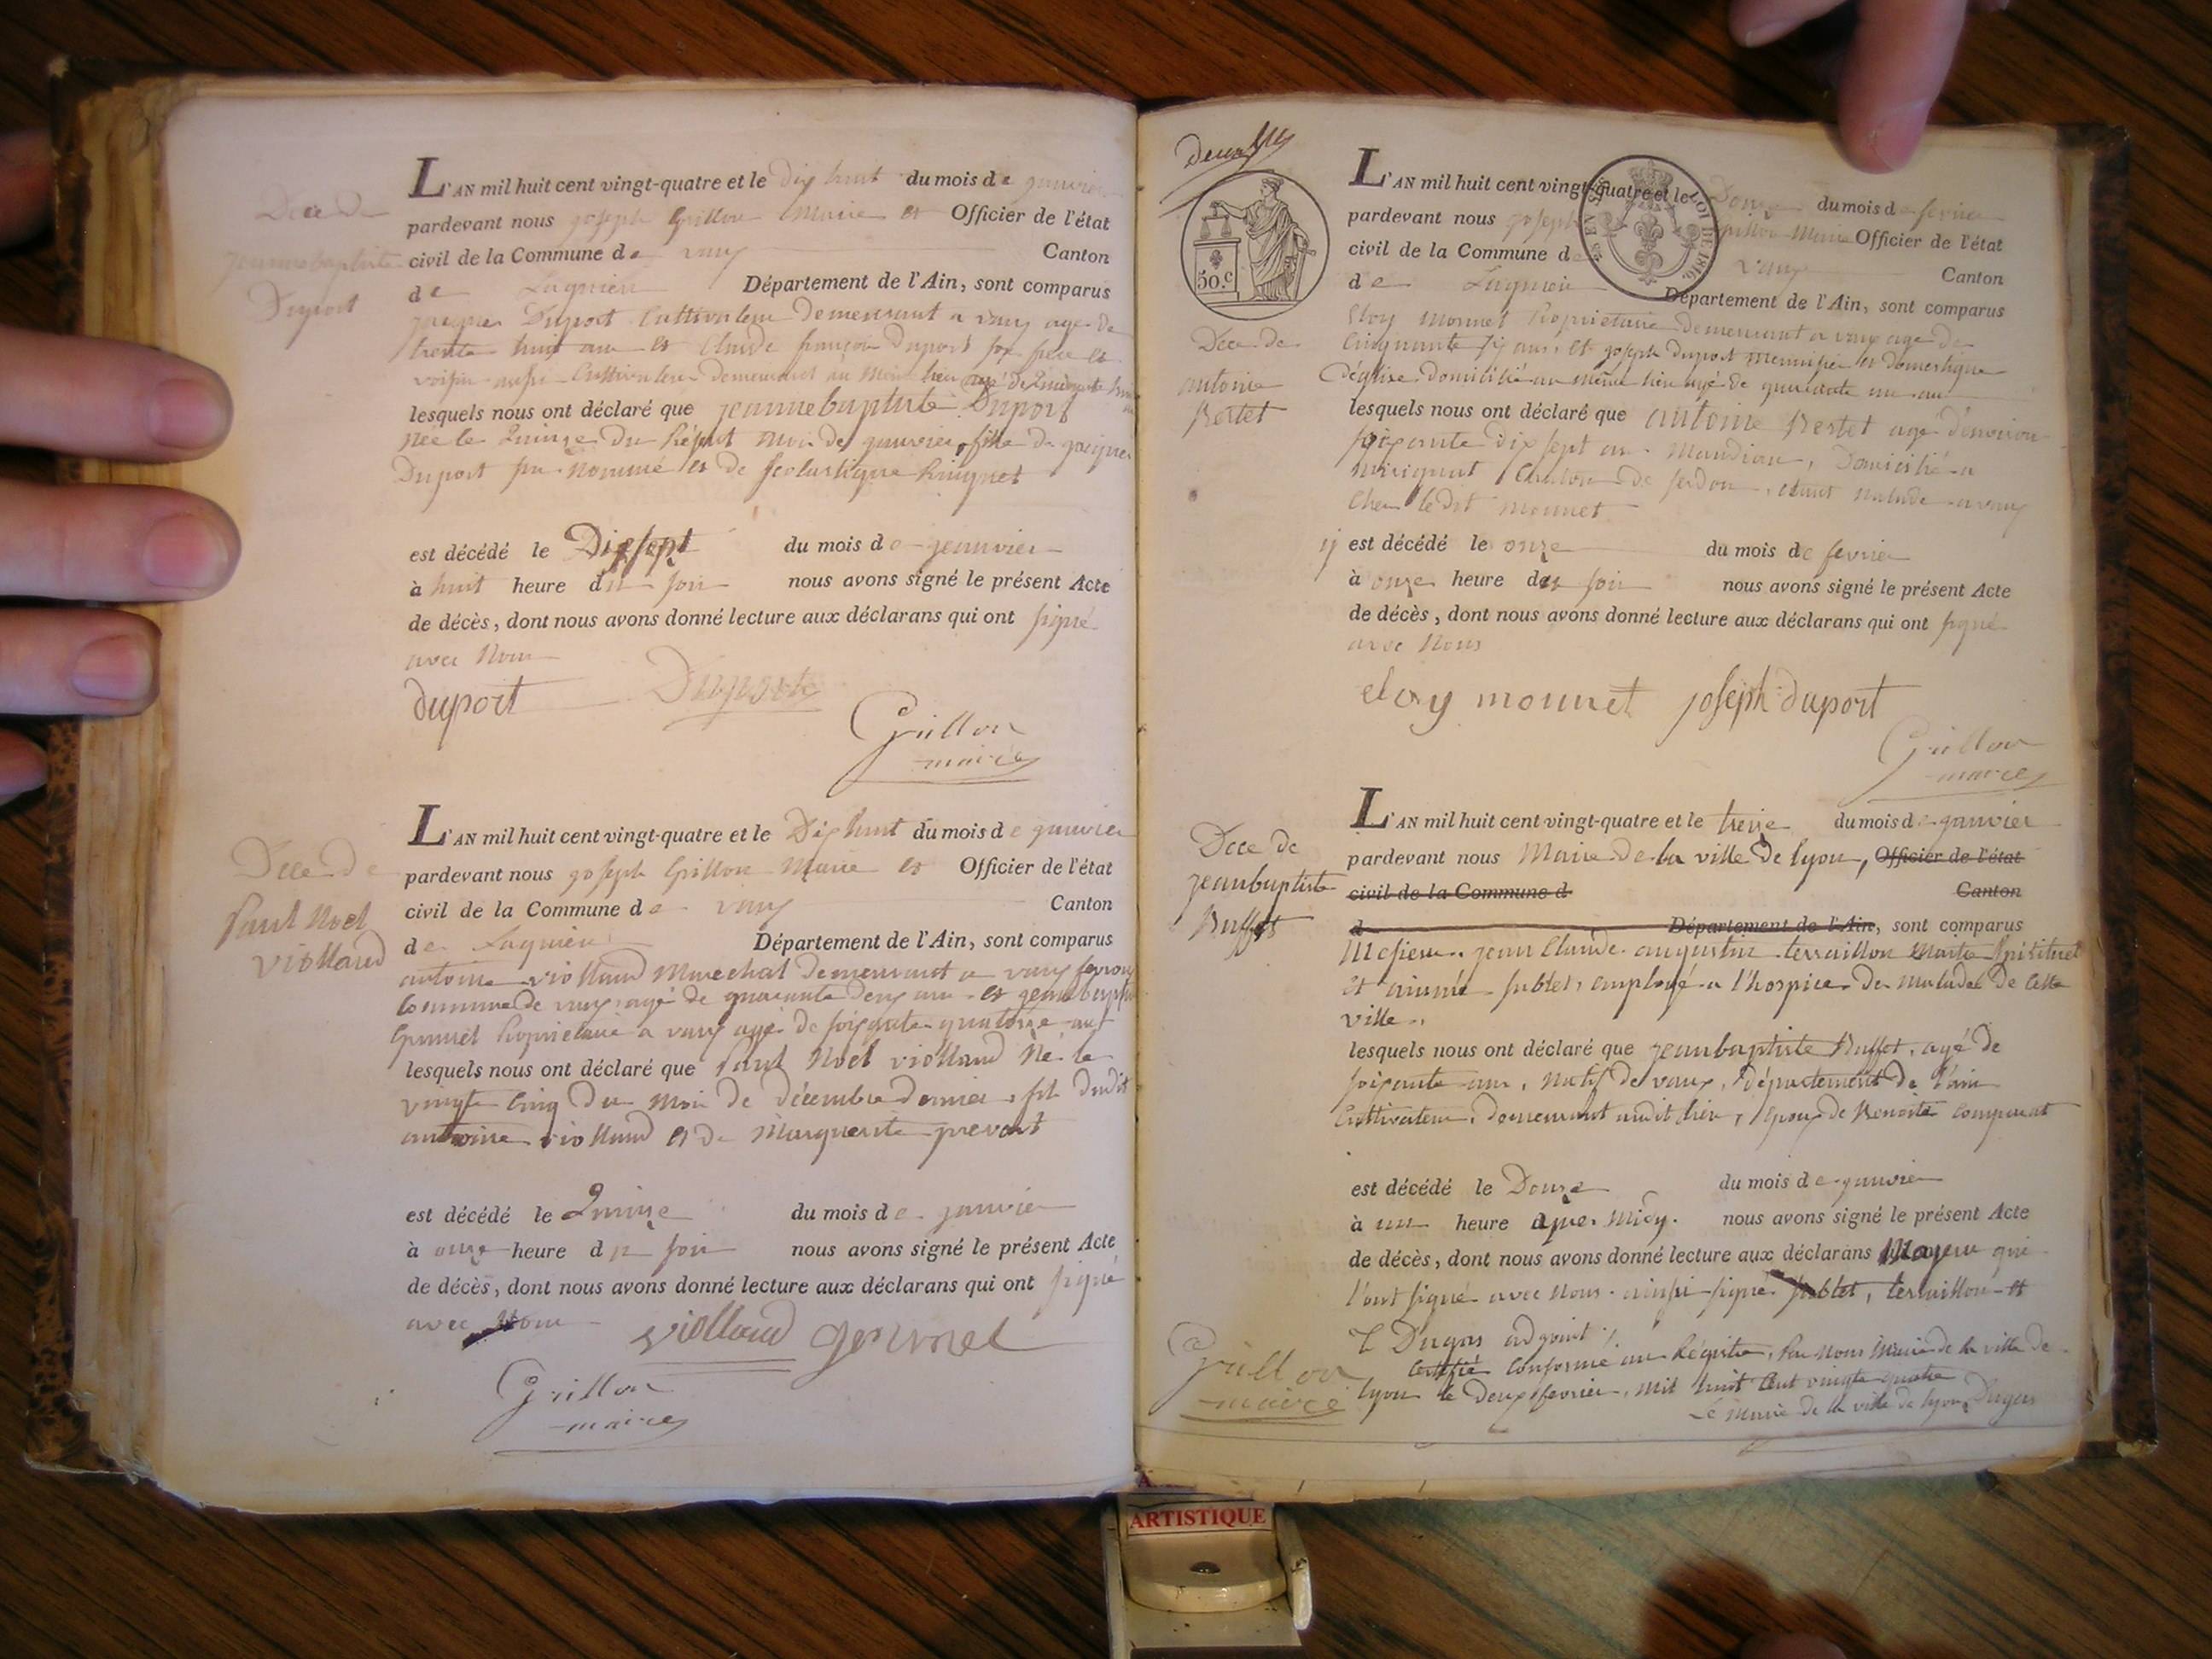 Dece de
jeanne baptiste
Duport
L'AN mil huit cent vingt-quatre et le dix huit du mois de janvier
pardevant nous joseph Grillon Maire et Officier de l'état
civil de la Commune de vaux Canton
de Lagnieu Département de l'Ain, sont comparus
jacques Duport Cultivateur demeurant a vaux age de
trente huit ans et Claude françois duport son frere et
voisin aussi Cultivateur demeurant au meme lieu agé de
lesquels nous ont déclaré que jeanne baptiste Duport
née le quinze du présent mois de janvier, fille de jacques
Duport sus nommé et de scolastique
est décédé le Dixsept du mois de jeanvier
à huit heure du soir nous avons signé le présent Acte
de décès, dont nous avons donné lecture aux déclarans qui ont signé
avec Nous
duport Duport
Grillon
maire
Dece de
Paul Noel
viollaud
L'AN mil huit cent vingt-quatre et le Dix huit du mois de janvier
pardevant nous joseph Grillon Maire et Officier de l'état
civil de la Commune de vaux Canton
de Lagnieu Département de l'Ain, sont comparus
antoine viollaud Marechal demeurant a vaux fevrou
Commune de vaux, agé de quarante deux ans et jean baptiste
Proprietaire a vaux agé de soixante quatorze ans
lesquels nous ont déclaré que Paul Noel viollaud Né le
vingte Cinq du Mois de décembre dernier, fils dudit
antoine viollaud et de Marguerite prevost
est décédé le Quinze du mois de janvier
à onze heure du soir nous avons signé le présent Acte
de décès, dont nous avons donné lecture aux déclarans qui ont signé
avec Nous
viollaud
Grillon
maire
50.c
EN SUS
LOI DE 1816.
Dece de
antoine
Bertet
L'AN mil huit cent vingt-quatre et le Douze du mois de fevrier
pardevant nous joseph Grillon Maire Officier de l'état
civil de la Commune de vaux Canton
de Lagnieu Département de l'Ain, sont comparus
Eloy Monnet Proprietaire demeurant a vaux age de
Cinquante six ans, et joseph duport Menuisier et Domestique
d'église domicilié au même lieu agé de quarante un ans
lesquels nous ont déclaré que antoine Bertet agé d'environ
soixante dix sept ans Mandiant, Domicilié a
Canton de serdon, étant malade a vaux
Chez ledit Monnet
y est décédé le onze du mois de fevrier
à onze heure du soir nous avons signé le présent Acte
de décès, dont nous avons donné lecture aux déclarans qui ont signé
avec Nous
eloy monnet joseph duport
Grillon
maire
Dece de
jeanbaptiste
Buffet
L'AN mil huit cent vingt-quatre et le treize du mois de janvier
pardevant nous Maire de la ville de lyon, Officier de l'état
civil de la Commune d Canton
d Département de l'Ain, sont comparus
Messieurs jean Claude augustin terraillon
et aimé sublet, employé a l'hospice des malades de Cette
ville.
lesquels nous ont déclaré que jeanbaptiste Buffet, agé de
soixante ans, Natif de vaux, département de l'ain
Cultivateur, demeurant audit lieu, epoux de Benoite
est décédé le Douze du mois de janvier
à un heure apres Midy. nous avons signé le présent Acte
de décès, dont nous avons donné lecture aux déclarans Majeurs qui
l'ont signé avec Nous. ainsi signé sublet, terraillon et
Dugas adjoint
Certifié Conforme au Régistre, Par Nous Maire de la ville de
lyon le Deux fevrier, mil huit Cent vingte quatre
Le Maire de la ville de lyon, Dugas
Grillon
maire
ARTISTIQUE